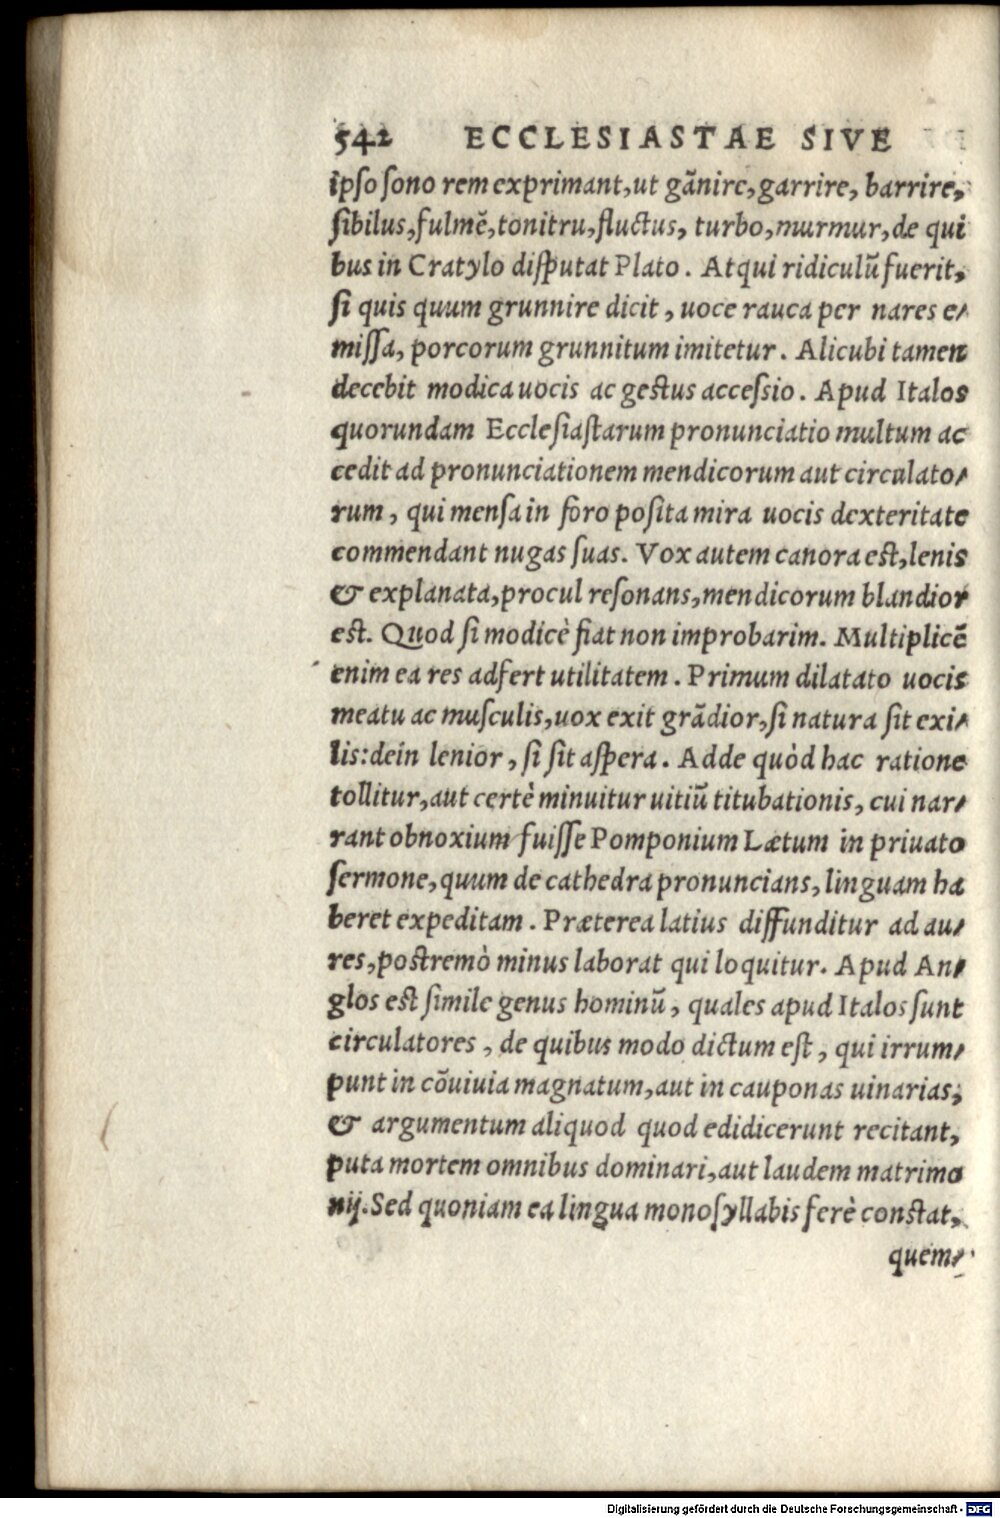 542 ECCLESIASTAE SIVE
ipſo ſono rem exprimant, ut gãnire, garrire, barrire,
ſibilus, fulmẽ, tonitru, fluctus, turbo, murmur, de qui
bus in Cratylo diſputat Plato. Atqui ridiculũ fuerit,
ſi quis quum grunnire dicit, uoce rauca per nares e⸗
miſſa, porcorum grunnitum imitetur. Alicubi tamen
decebit modica uocis ac geſtus acceſsio. Apud Italos
quorundam Eccleſiaſtarum pronunciatio multum ac
cedit ad pronunciationem mendicorum aut circulato⸗
rum, qui menſa in foro poſita mira uocis dexteritate
commendant nugas ſuas. Vox autem canora eſt, lenis
& explanata, procul reſonans, mendicorum blandior
eſt. Quod ſi modicè fiat non improbarim. Multiplicẽ
enim ea res adfert utilitatem. Primum dilatato uocis
meatu ac muſculis, uox exit grãdior, ſi natura ſit exi⸗
lis: dein lenior, ſi ſit aſpera. Adde quòd hac ratione
tollitur, aut certè minuitur uitiũ titubationis, cui nar⸗
rant obnoxium fuiſſe Pomponium Lætum in priuato
ſermone, quum de cathedra pronuncians, linguam ha
beret expeditam. Præterea latius diffunditur ad au⸗
res, poſtremò minus laborat qui loquitur. Apud An⸗
glos eſt ſimile genus hominũ, quales apud Italos ſunt
circulatores, de quibus modo dictum eſt, qui irrum⸗
punt in cõuiuia magnatum, aut in cauponas uinarias,
& argumentum aliquod quod edidicerunt recitant,
puta mortem omnibus dominari, aut laudem matrimo
nij. Sed quoniam ea lingua monoſyllabis ferè conſtat,
quem⸗
Digitalisierung gefördert durch die Deutsche Forschungsgemeinschaft - DFG